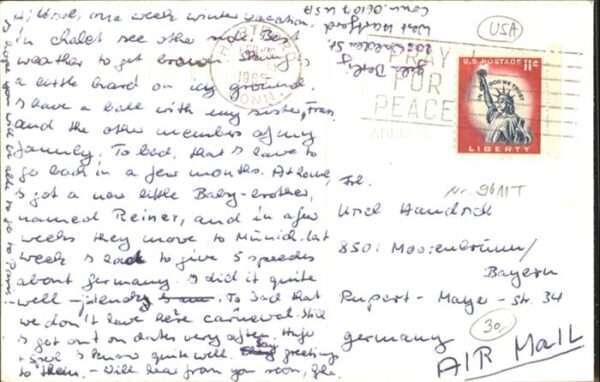 Hi Ursel, one week winter vacation
in chalet see other side. Best
weather to get brown. Skiing is
a little hard on icy ground.
I have a ball with my sister, Fran,
and the other members of my
family. To bad, that I have to
go back in a few months. At home
I got a new little Baby-brother,
named Reiner, and in a few
weeks they move to Munich. Last
week I had to give 5 speeches
about germany. I did it quite
well
To sad that
we don't have here carneval. Still
I get out on dates very often. Hugo
I know quite well. Say greetings
to them. - Will hear from you soon,
I hope you will be able to go to Paris!
West Hartford
Conn. 06107 USA
USA
HARTFORD
1965
CONN.
PRAY
FOR
PEACE
U.S. POSTAGE 11¢
IN GOD WE TRUST
LIBERTY
Frl.
Nr. 9611T
Ursel Handrick
8501 Moosenbrunn/
Bayern
Rupert-Mayer-Str. 34
germany
30,
AIR MAIL